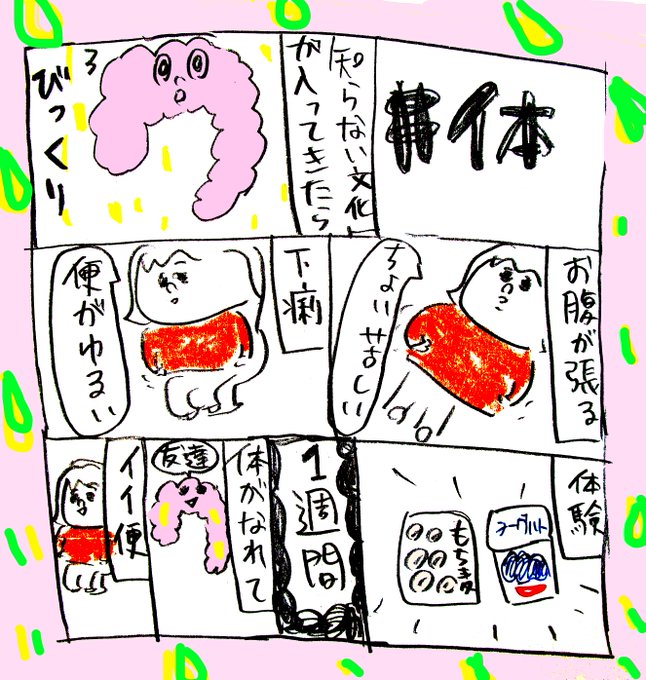 体
知らない文化
が入ってきたら
びっくり
お腹が張る
ちょい
下痢
便がゆるい
体験
ヨーグルト
もち
1週間
体がなれて
友達
イイ便